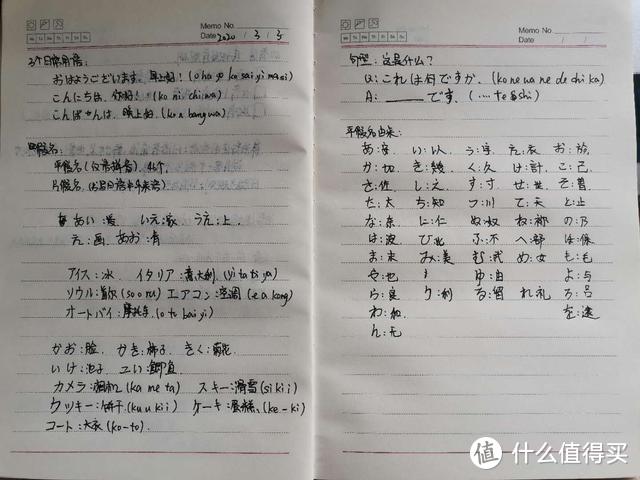 Memo No.
Date 2020 / 3 / 3
3个日常用语:
おはようございます. 早上好! (o ha yo ko sai yi ma si)
こんにちは. 你好! (ko ni chi wa)
こんばんは. 晚上好. (ko n bang wa)
四假名:
平假名
片假名
あい:爱 いえ:家 うえ:上
え:画 あお:青
アイス:冰 イタリア:意大利. (yi ta li ya)
ソウル:首尔 (so o ru) エアコン:空调 (e a kong)
オートバイ:摩托车 (o to bai yi)
かお:脸. かき:柿子. きく:菊花
いけ:池子 こい:鲫鱼
カメラ:相机 (ka me ta) スキー:滑雪 (si ki i)
クッキー:饼干 (ku u ki i) ケーキ:蛋糕. (ke-ki)
コート:大衣 (ko-to).
Memo No.
Date / /
句型: 这是什么?
Q:これは何ですか. (ko ne wa ne de chi ka)
A: ____です. (.... te shi)
平假名由来:
あ:安. い:以 う:宇. え:衣 お:於
か:加 き:幾 く:久 け:計 こ:己
さ:佐 し:之 す:寸 せ:世 そ:曽
た:太 ち:知 つ:川 て:天 と:止
な:奈 に:仁 ぬ:奴 ね:祢 の:乃
は:波 ひ:比 ふ:不 へ:部 ほ:保
ま:末 み:美 む:武 め:女 も:毛
や:也 ゆ:由 よ:与
ら:良 り:利 る:留 れ:礼 ろ:呂
わ:和 を:遠
ん:无
值 什么值得买